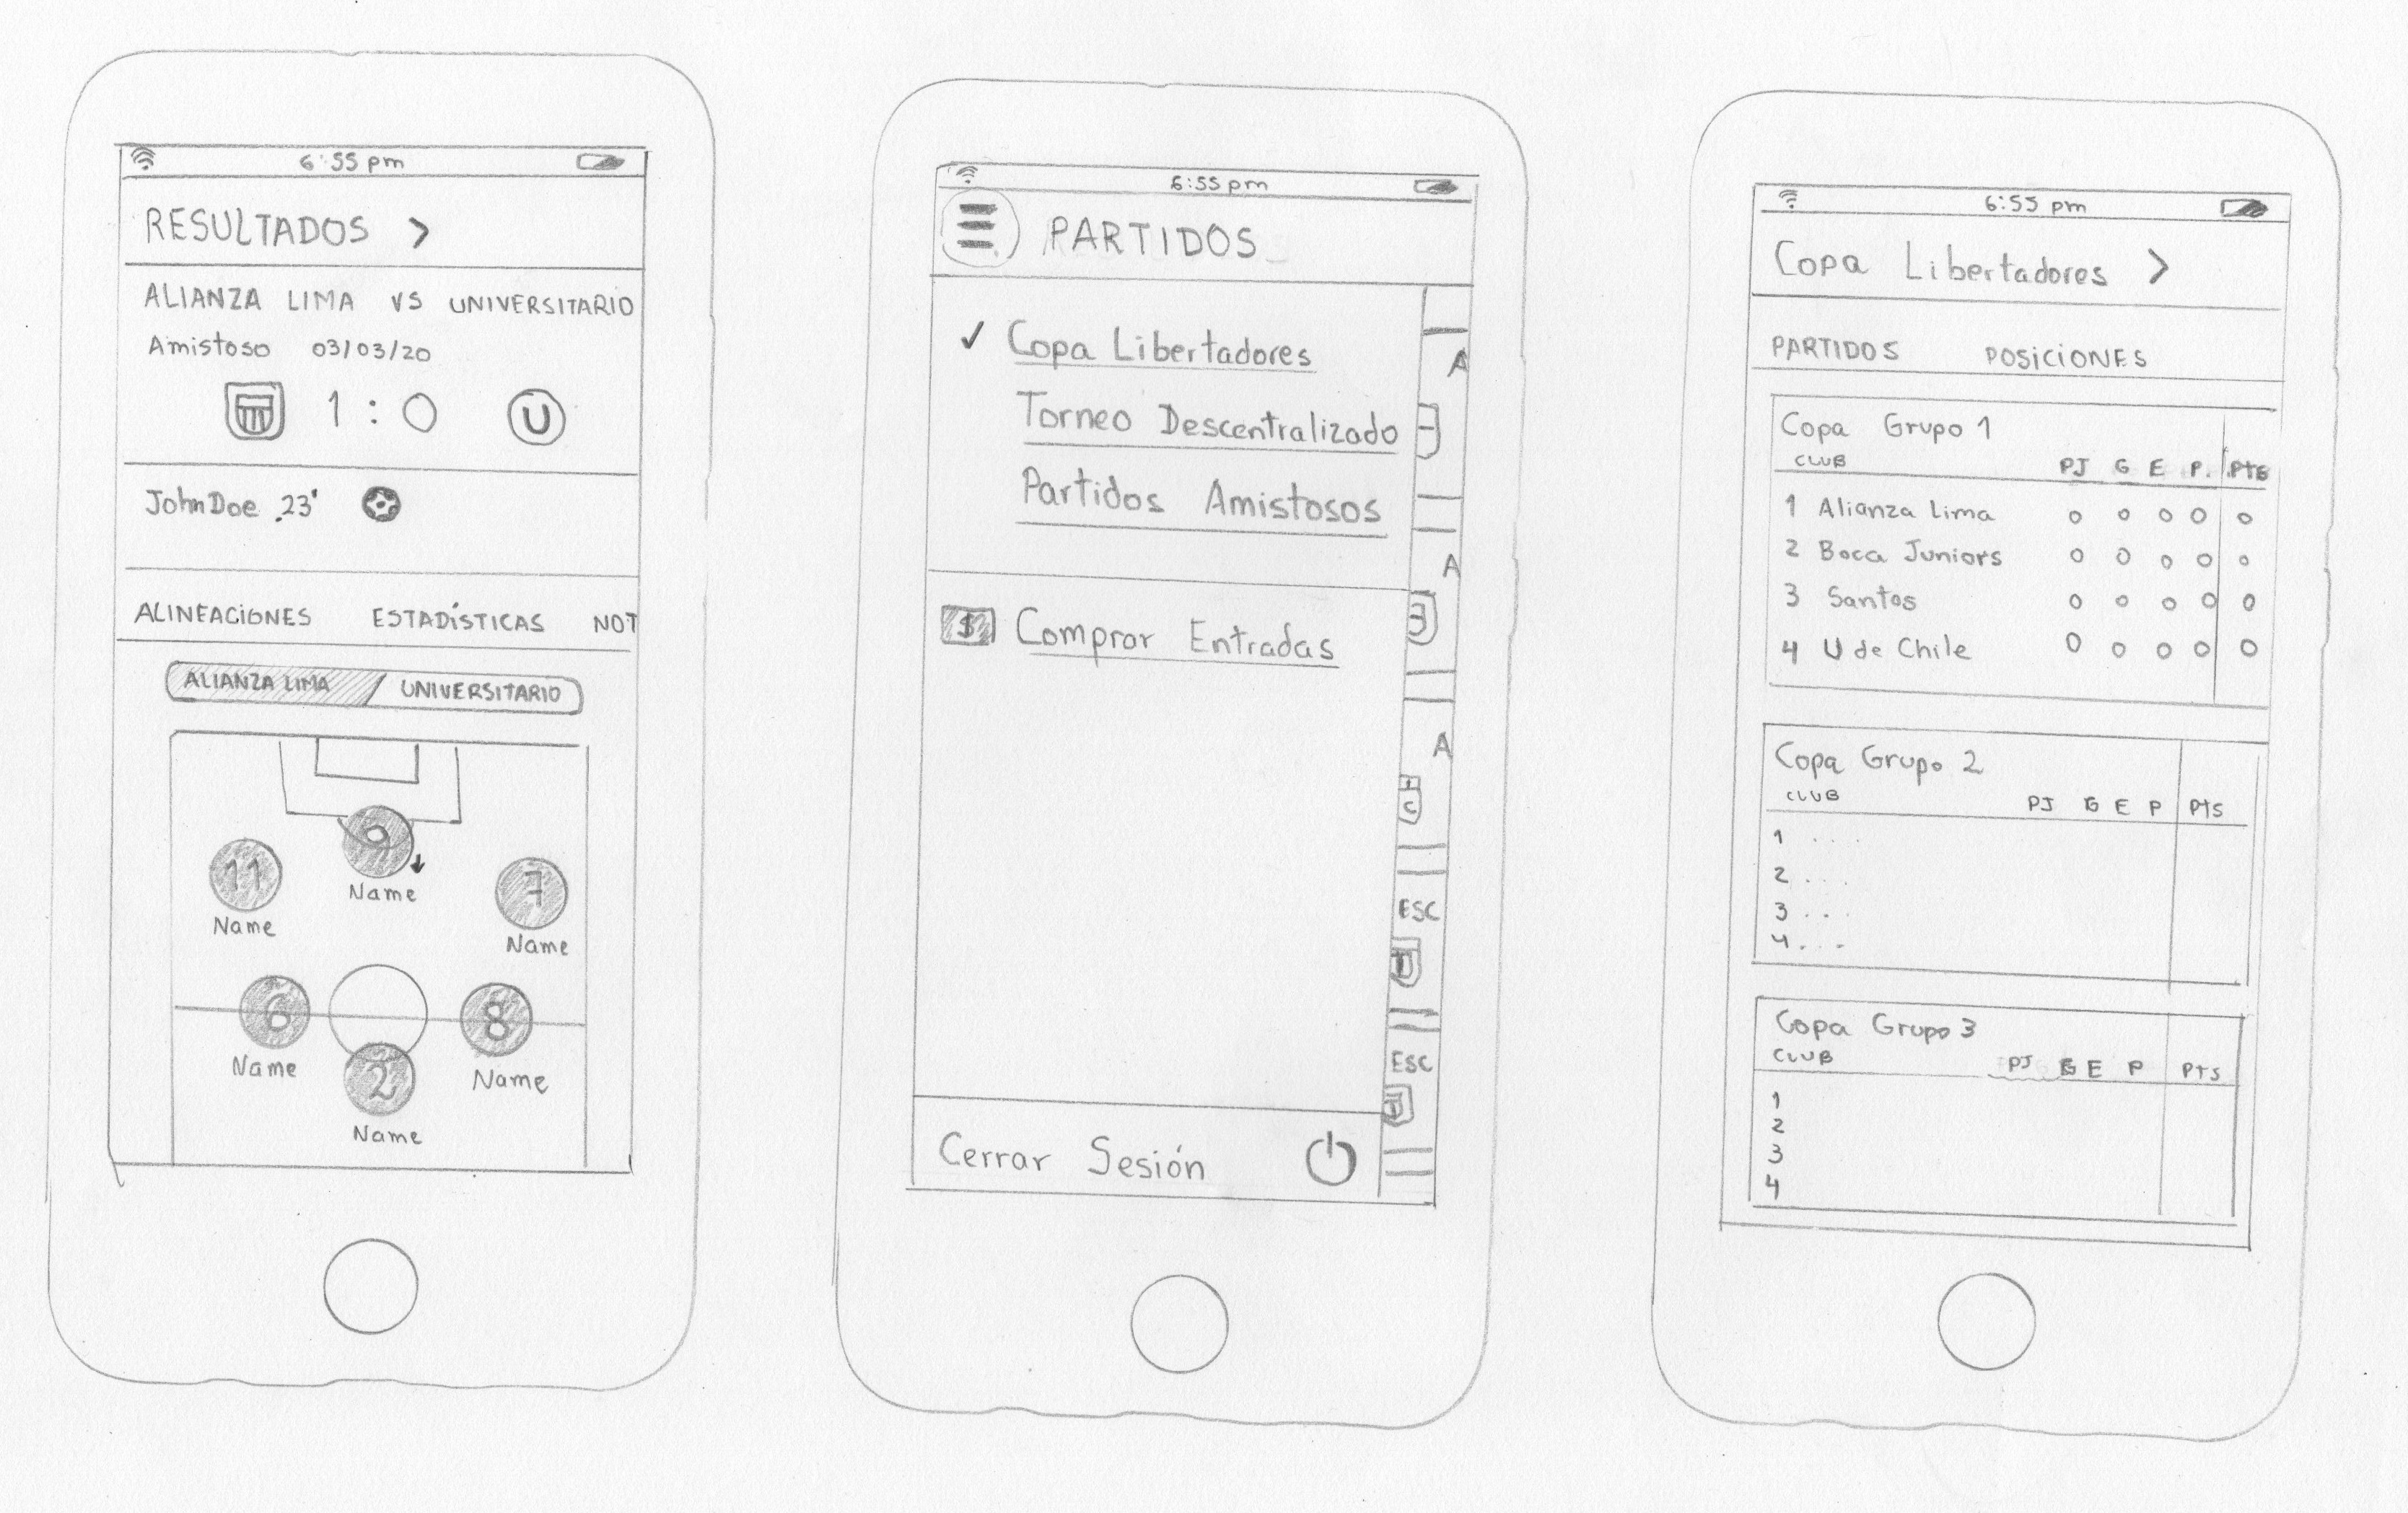 6:55 pm
RESULTADOS >
ALIANZA LIMA VS UNIVERSITARIO
Amistoso 03/03/20
1 : 0 U
John Doe 23'
ALINEACIONES ESTADÍSTICAS NOT
ALIANZA LIMA UNIVERSITARIO
9
Name
11
Name
7
Name
6
Name
8
Name
2
Name
6:55 pm
PARTIDOS
✓ Copa Libertadores
Torneo Descentralizado
Partidos Amistosos
$ Comprar Entradas
Cerrar Sesión
A
A
A
C
ESC
ESC
6:55 pm
Copa Libertadores >
PARTIDOS POSICIONES
Copa Grupo 1
CLUB PJ G E P. PTS
1 Alianza Lima 0 0 0 0 0
2 Boca Juniors 0 0 0 0 0
3 Santos 0 0 0 0 0
4 U de Chile 0 0 0 0 0
Copa Grupo 2
CLUB PJ G E P PTS
1 . . . .
2 . . . .
3 . . .
4 . . .
Copa Grupo 3
CLUB PJ G E P PTS
1
2
3
4